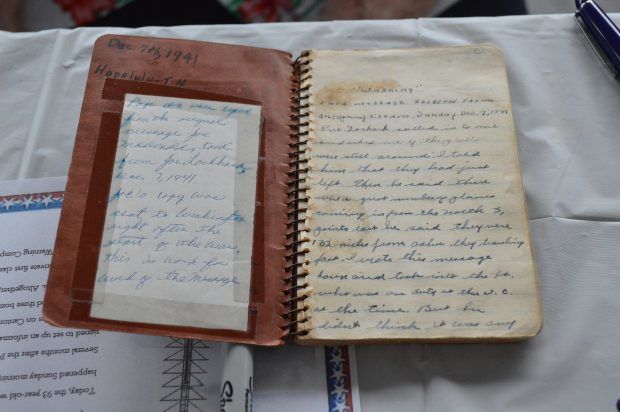 Dec. 7th, 1941
Honolulu - T.H.
from the original
message Joe
McDonald, took
from Joe Lockhard,
Dec. 7, 1941.
Joe's copy was
sent to Washington
right after the
start of the war.
this is word for
word of the message
"WARNING"
THIS MESSAGE RECEIVED FROM
SUNDAY DEC. 7, 1941
Pvt. Lockard called in to me
and asked me if they
were still around. I told
him that they had just
left. Then he said there
were a great number of planes
coming in from the North 3,
points east he said they were
132 miles from oahu they
fast. I wrote this message
down and took into the Lt.
who was on duty at the I.C.
at the time. But he
didn't think it was any
Warning Comp
private first class
Altogether,
and three bom
on Carton
signed to set up an informa
Several months after the P
happened Sunday morning
Today, the 93 year-old
Sha